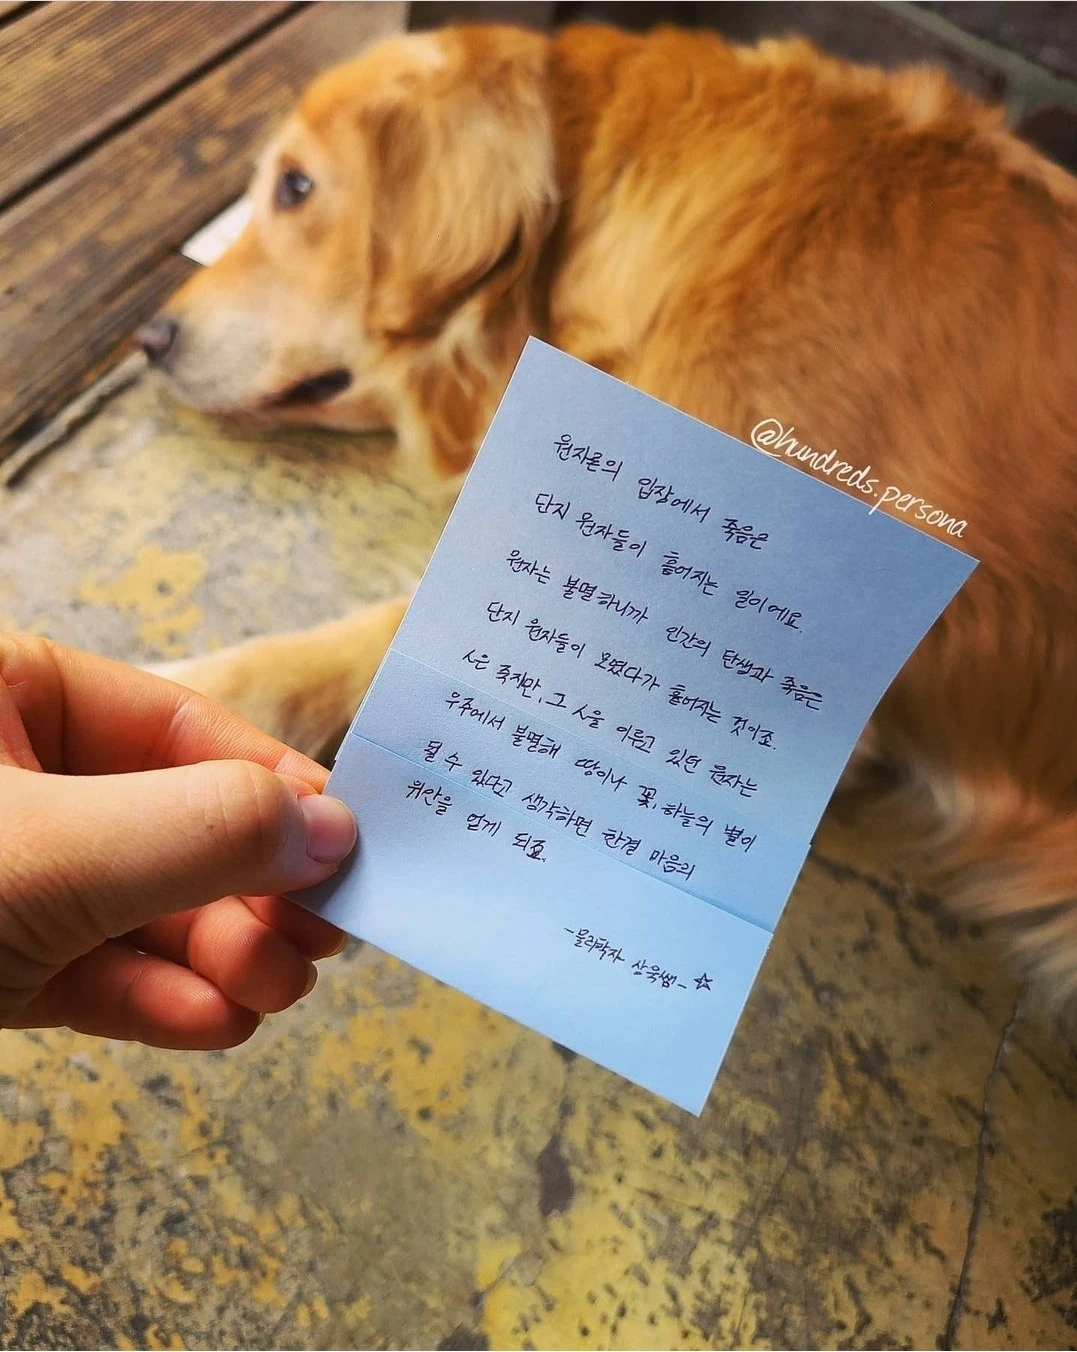 @hundreds.persona
원자론의 입장에서 죽음은
단지 원자들이 흩어지는 일이에요.
원자는 불멸하니까 인간의 탄생과 죽음은
단지 원자들이 모였다가 흩어지는 것이죠.
人은 죽지만, 그 人을 이루고 있던 원자는
우주에서 불멸해 땅이나 꽃, 하늘의 별이
될 수 있다고 생각하면 한결 마음의
위안을 얻게 되죠.
-물리학자 상욱쌤- ☆